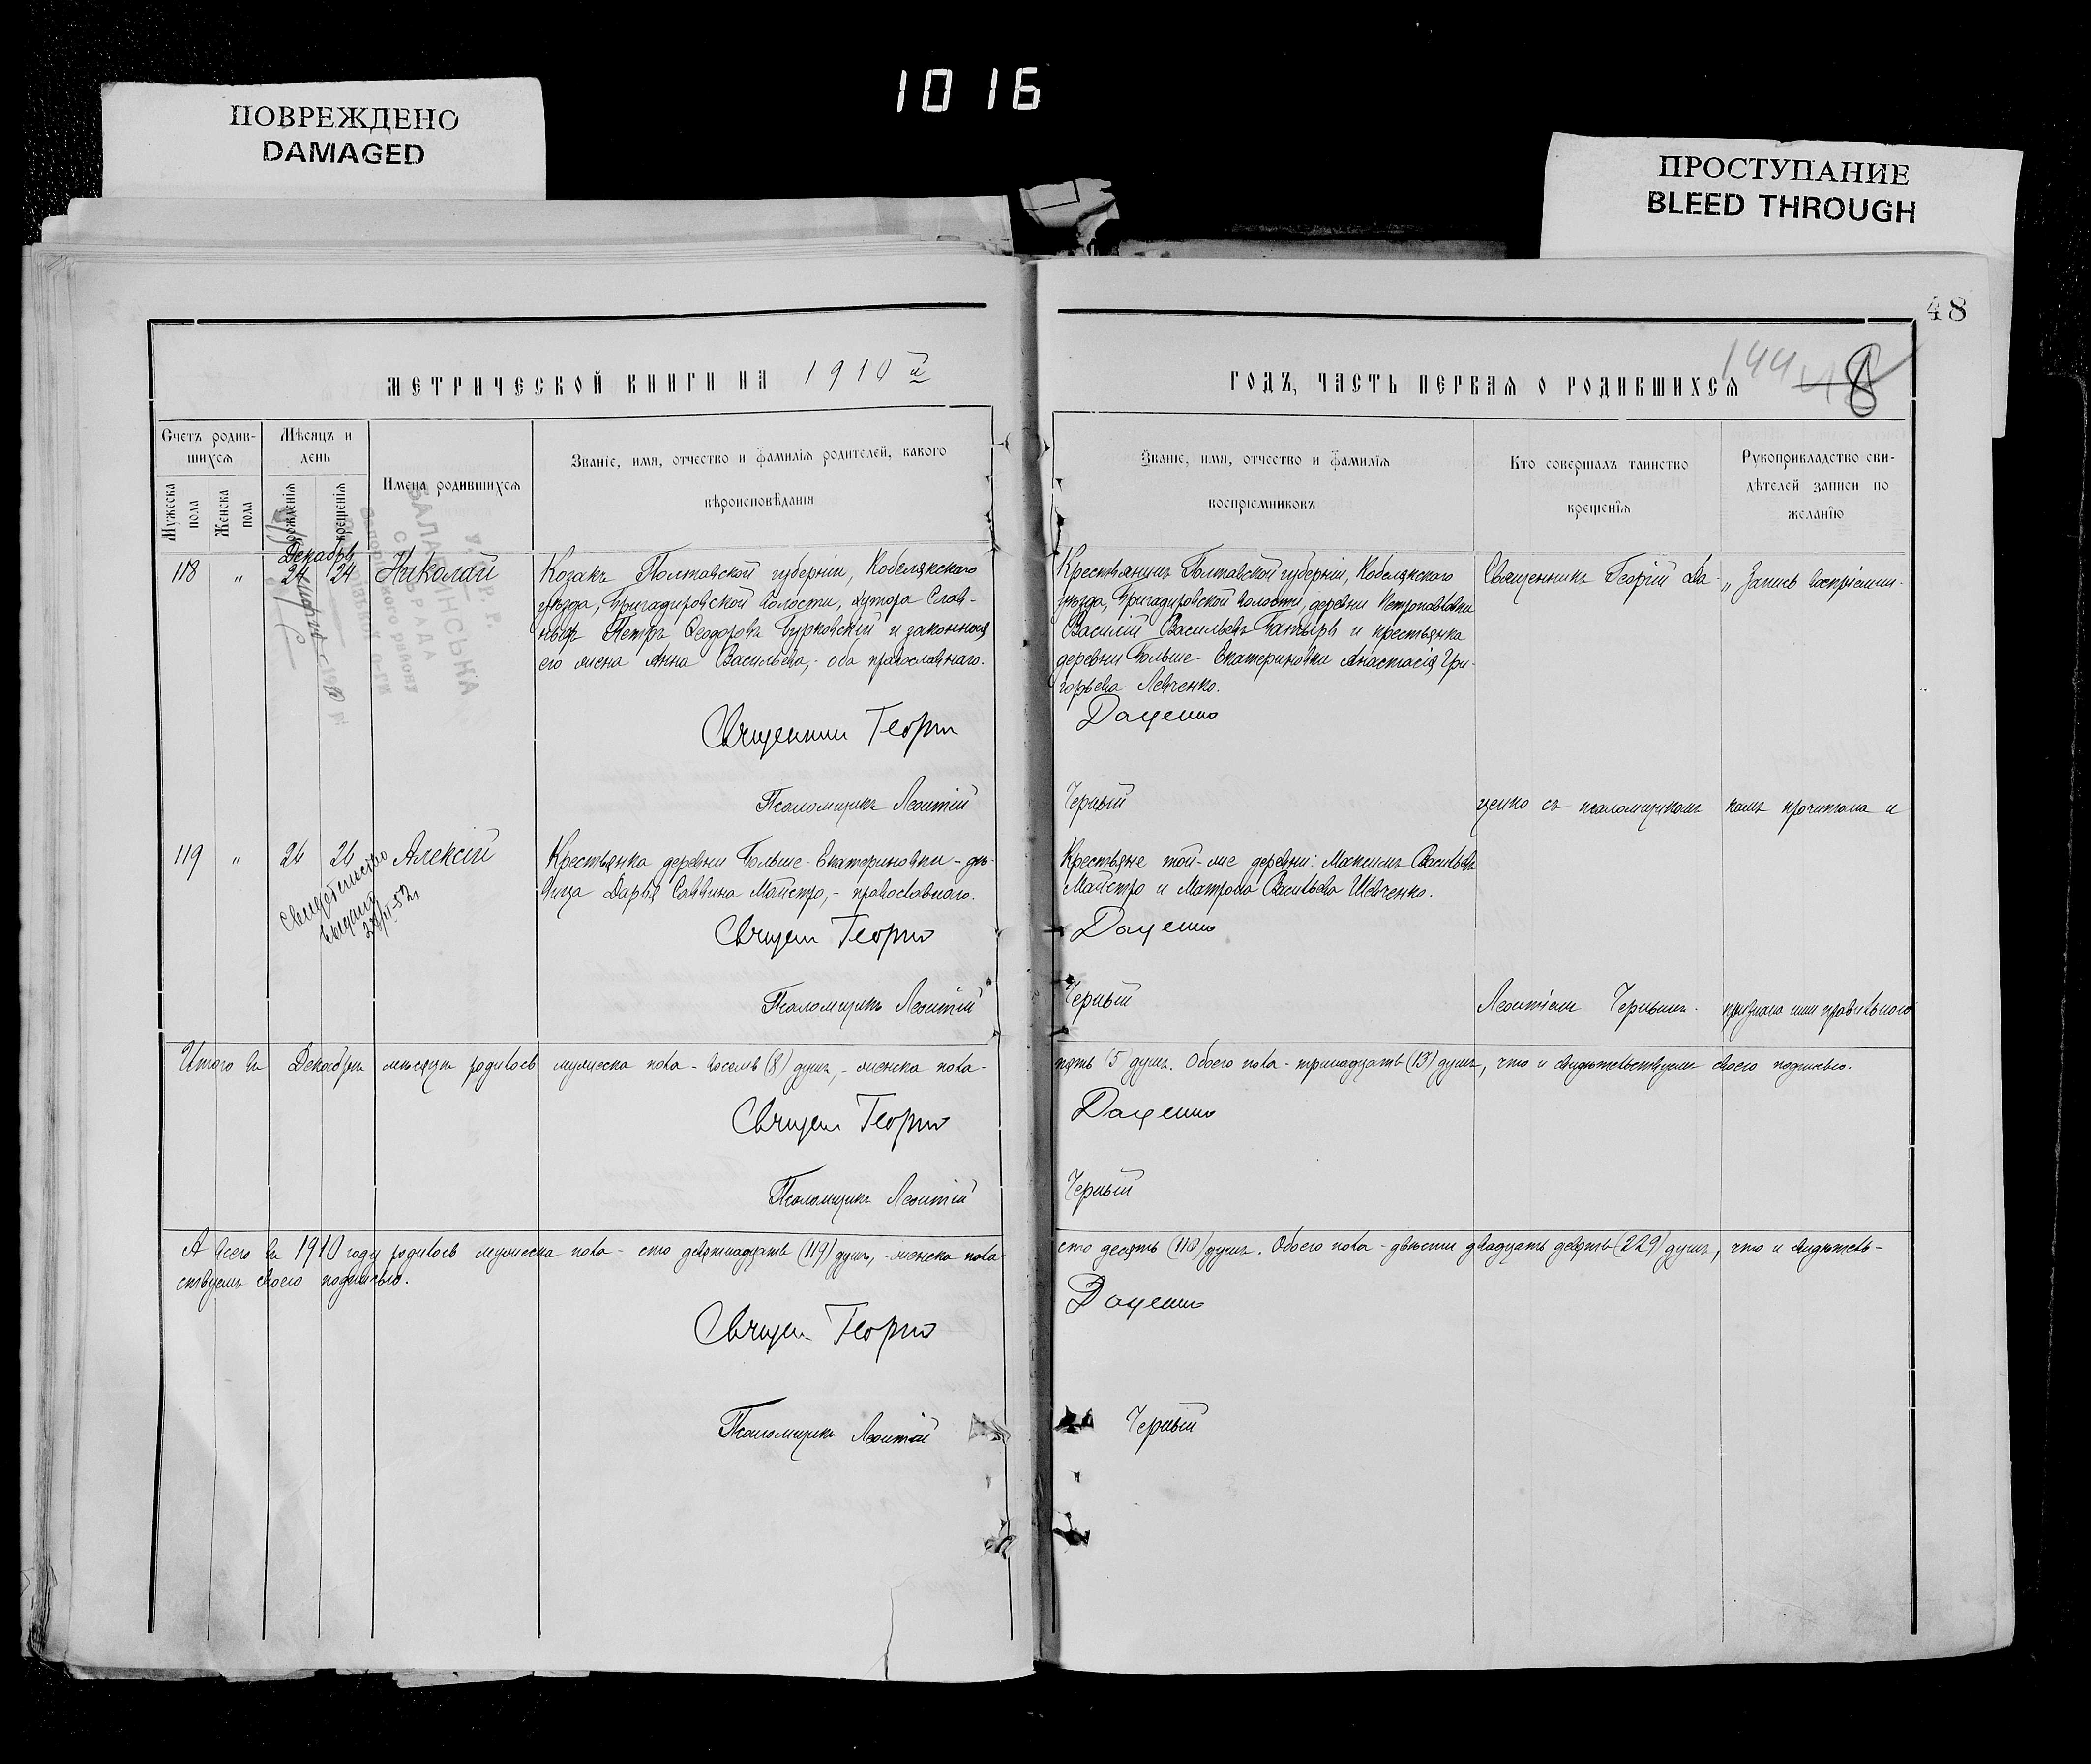 1016
ПОВРЕЖДЕНО
DAMAGED
ПРОСТУПАНИЕ
BLEED THROUGH
48
МЕТРИЧЕСКОЙ КНИГИ НА 1910й
Счетъ родив-
шихся
Мужеска пола
Женска пола
Мѣсяцъ и
день
рожденія
крещенія
Имена родившихся
Званіе, имя, отчество и фамилія родителей, какого
вѣроисповѣданія
Декабрь
118 " 24 24 Николай
Козакъ Полтавской губерніи, Кобелякскаго
уѣзда, Бригадировской волости, хутора
Петръ Ѳеодоровъ Бурковскій и законная
его жена Анна Васильева,- оба православнаго.
Священник Георгий
Псаломщикъ Леонтій
119 " 24 24 Алексій
Свидетельство
выдано
Крестьянка деревни Больше-Екатериновки - дѣ-
вица Дарья Саввина Майстро,- православнаго.
Священ Георгий
Псаломщикъ Леонтій
Итого въ Декабрѣ мѣсяцѣ родилось мужеска пола - восемь (8) душъ,- женска пола -
Священ Георгий
Псаломщикъ Леонтій
А всего въ 1910 году родилось мужеска пола - сто девятнадцать (119) душъ,- женска пола
ствуемъ своею подписью.
Священ Георгий
Псаломщикъ Леонтій
ГОДЪ, ЧАСТЬ ПЕРВАЯ О РОДИВШИХСЯ
144
Званіе, имя, отчество и фамилія
воспріемниковъ
Кто совершалъ таинство
крещенія
Рукоприкладство сви-
дѣтелей записи по
желанію
Крестьянинъ Полтавской губерніи, Кобелякскаго
уѣзда, Бригадировской волости, деревни Петропавловки
Василій Васильевъ Батыръ и крестьянка
деревни Больше-Екатериновки Анастасія Гри-
горьева Левченко.
Даценко
Черный
Священникъ Георгій Да-
ценко съ псаломщикомъ
Леонтіемъ Чернымъ.
" Запись воспріемни-
камъ прочитана и
признана ими правильною
Крестьяне той-же деревни: Максимъ Васильевъ
Майстро и Матрона Васильева Шевченко.
Даценко
Черный
пять (5 душъ. Обоего пола - тринадцать (13) душъ, что и свидѣтельствуемъ своею подписью.
Даценко
Черный
сто десять (110) душъ. Обоего пола - двѣсти двадцать девять (229) душъ, что и свидѣтель-
Даценко
Черный